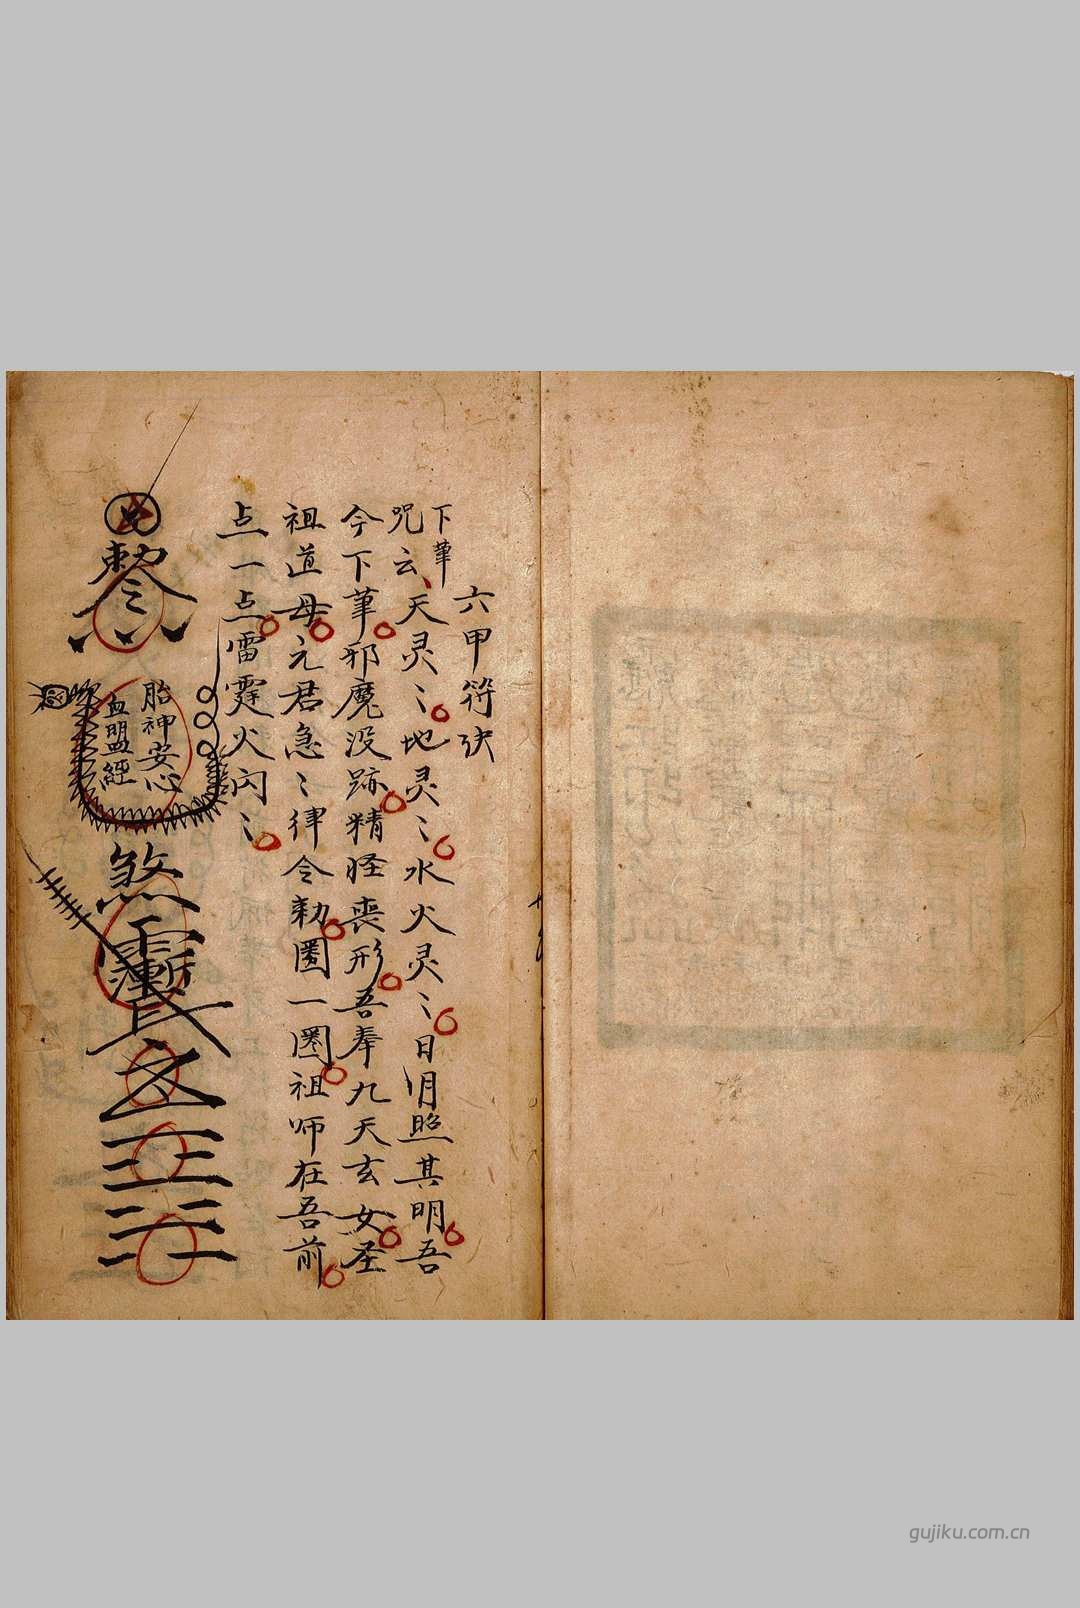 六甲符决
下筆
咒云天灵〻地灵〻水火灵〻日月照其明吾
今下筆邪魔没跡精怪丧形吾奉九天玄女圣
祖道母元君急〻律令勅圏一圏祖师在吾前
点一点雷霆火闪〻
胎神安心
血盟經
煞
gujiku.com.cn